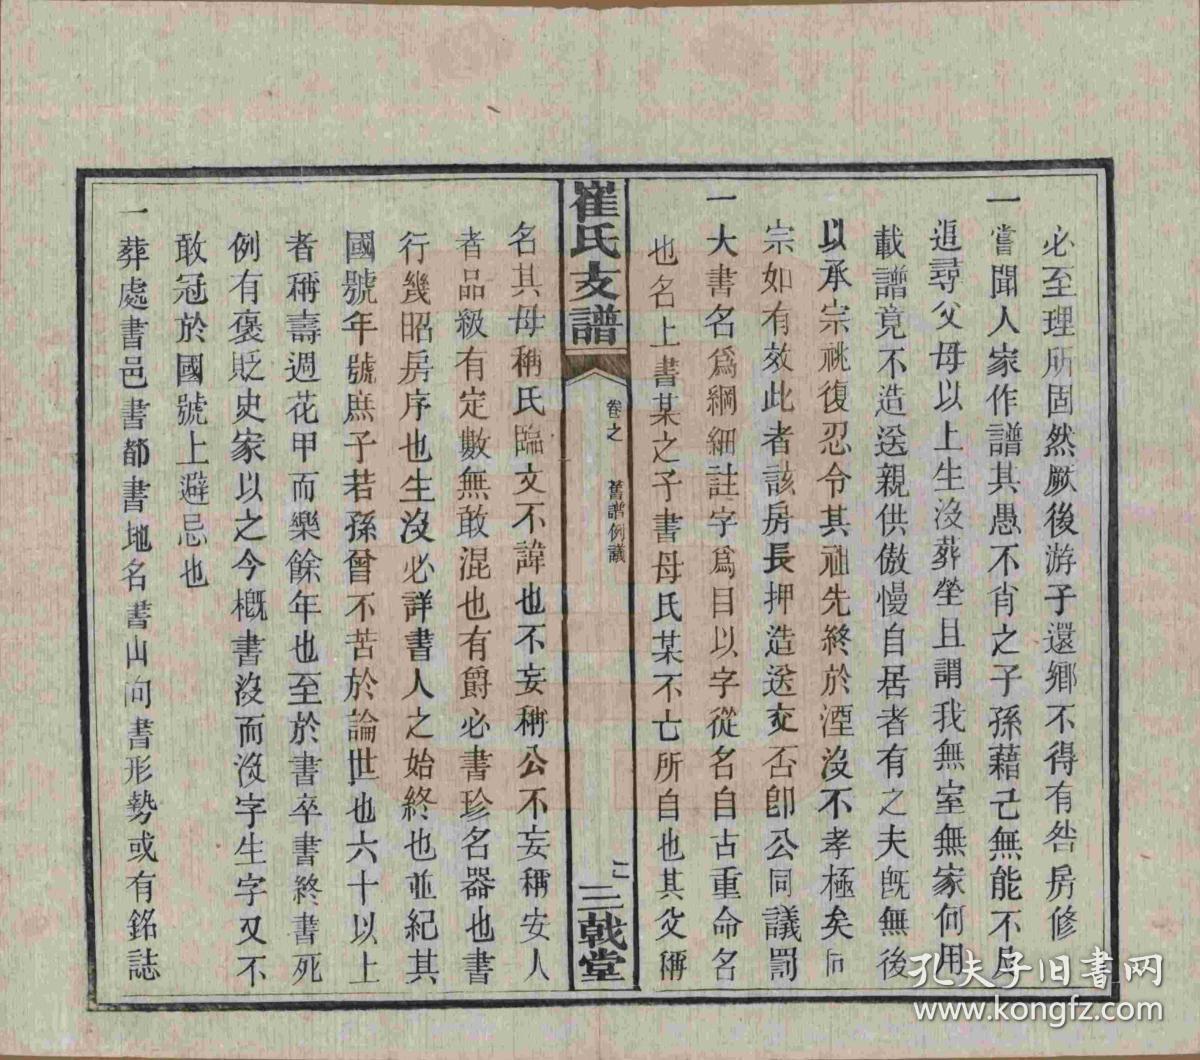 必至理所固然厥後游子還鄉不得有咎房修
一嘗聞人家作譜其愚不肖之子孫藉己無能不足
追尋父母以上生沒葬塋且謂我無室無家何用
載譜竟不造送親供傲慢自居者有之夫旣無後
以承宗祧復忍令其祖先終於湮沒不孝極矣同
宗如有效此者該房長押造送交否卽公同議罰
一大書名爲綱細註字爲目以字從名自古重命名
也名上書某之子書母氏某不亡所自也其父稱
崔氏支譜
卷之
舊譜例議
二
三戟堂
名其母稱氏臨文不諱也不妄稱公不妄稱安人
者品級有定數無敢混也有爵必書珍名器也書
行幾昭房序也生沒必詳書人之始終也並紀其
國號年號庶子若孫曾不苦於論世也六十以上
者稱壽週花甲而樂餘年也至於書卒書終書死
例有褒貶史家以之今槪書沒而沒字生字又不
敢冠於國號上避忌也
一葬處書邑書都書地名書山向書形勢或有銘誌
孔夫子旧書网
www.kongfz.com